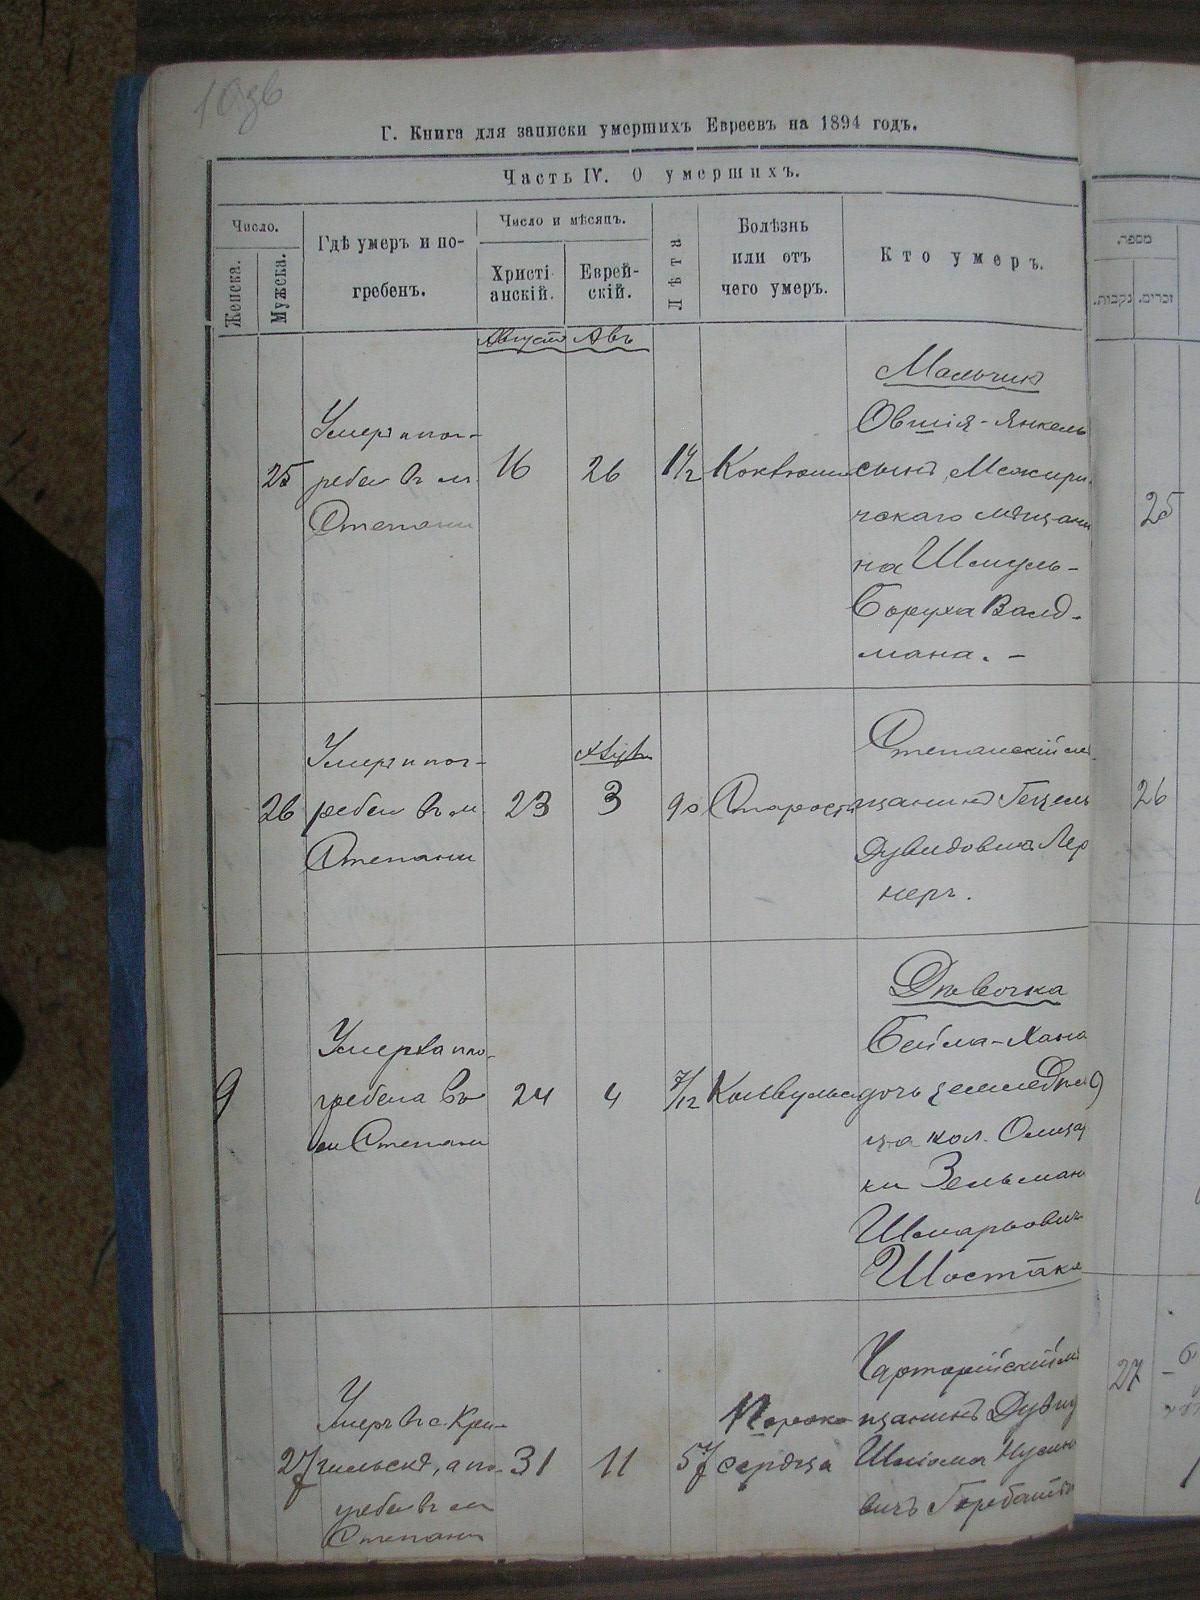 Г. Книга для записки умершихъ Евреевъ на 1894 годъ.
Часть IV. О умершихъ.
Число.
Женска.
Мужска.
Гдѣ умеръ и по-
гребенъ.
Число и мѣсяцъ.
Христі-
анскій.
Еврей-
скій.
Лѣта
Болѣзнь
или отъ
чего умеръ.
Кто умеръ.
מספר.
זכרים.
נקבות.
Августъ Авъ
25
Умеръ и пог-
ребен въ м.
Степани
16
26
1 1/2
Коклюши
Мальчикъ
Овшія-Янкель
сынъ Межири-
чскаго мѣщани
на Шмуль-
Боруха Валд-
мана. –
25
26
Умеръ и пог-
ребен въ м.
Степани
23
3
90
Старости
Степанскій мѣ
щанинъ Гецель
Дувидовичъ Лер
неръ.
26
9
Умерла и по-
гребена въ
м Степани
24
4
7/12
Конвульсі
Дѣвочка
Бейла-Хана
дочь земледѣл
ца кол. Омшар
ки Зельман
Шмарьович
Шостака
9
27
Умеръ въ с. Кри-
чильскѣ, а по-
гребен въ м
Степани
31
11
57
Порока
сердца
Чарторійскій мѣ
щанинъ Дувид
Шліома Нусин
вичъ
27